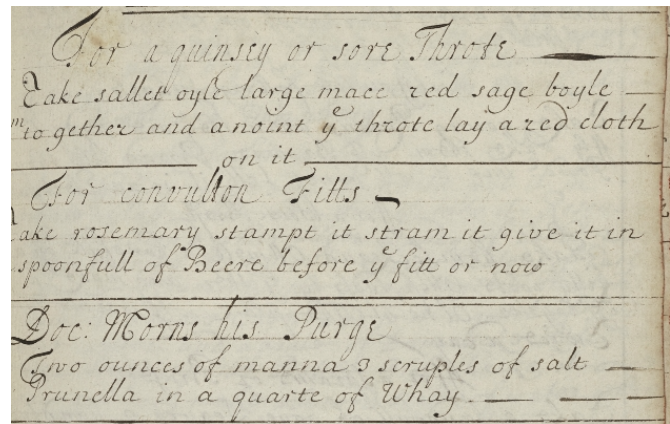 For a quinsey or sore Throte
Take sallet oyle large mace red sage boyle
m together and anoint yᵉ throte lay a red cloth
on it
For convultion Fitts
Take rosemary stampt it stram it give it in
spoonfull of Beere before yᵉ fitt or now
Doc: Morns his Purge
Two ounces of manna 3 scruples of salt
Prunella in a quarte of Whay